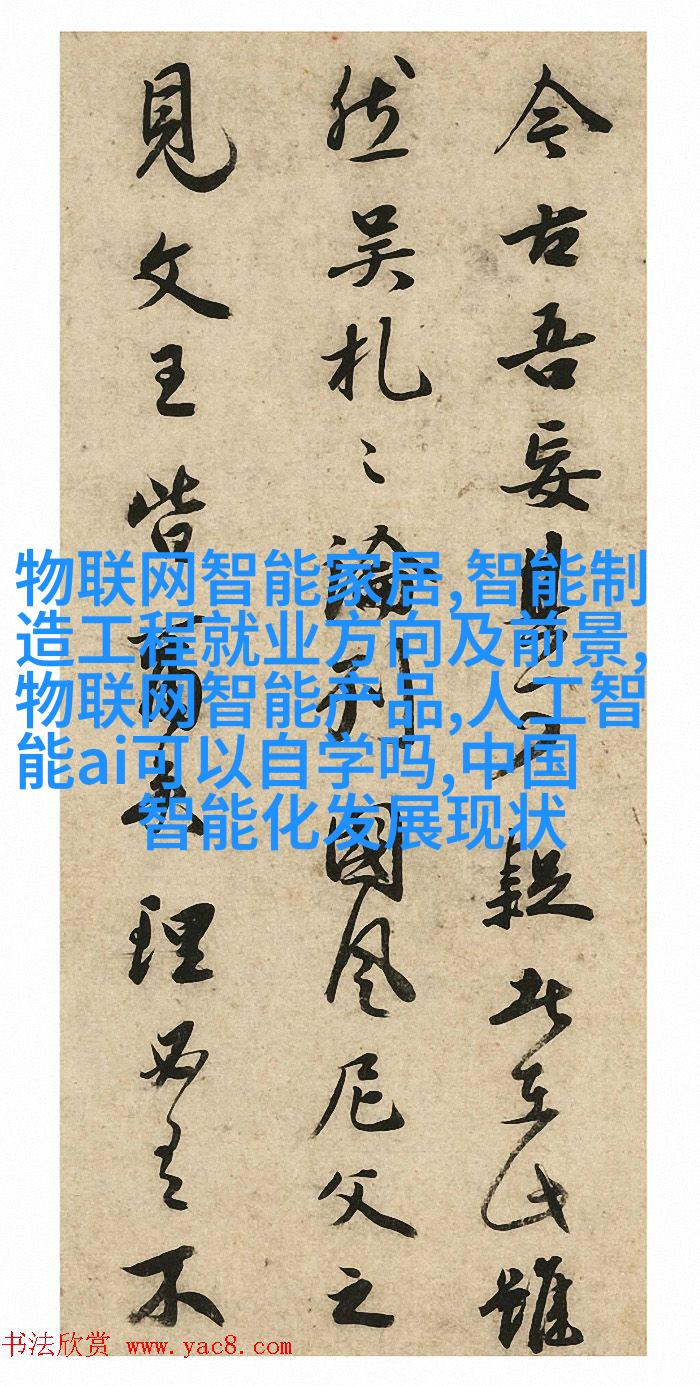 今古吾妄其疑此在此雖
然吴札〻論列國風尼父之
見文王皆理必有不
物联网智能家居,智能制
造工程就业方向及前景,
物联网智能产品,人工智
能ai可以自学吗,中国
智能化发展现状
书法欣赏 www.yac8.com